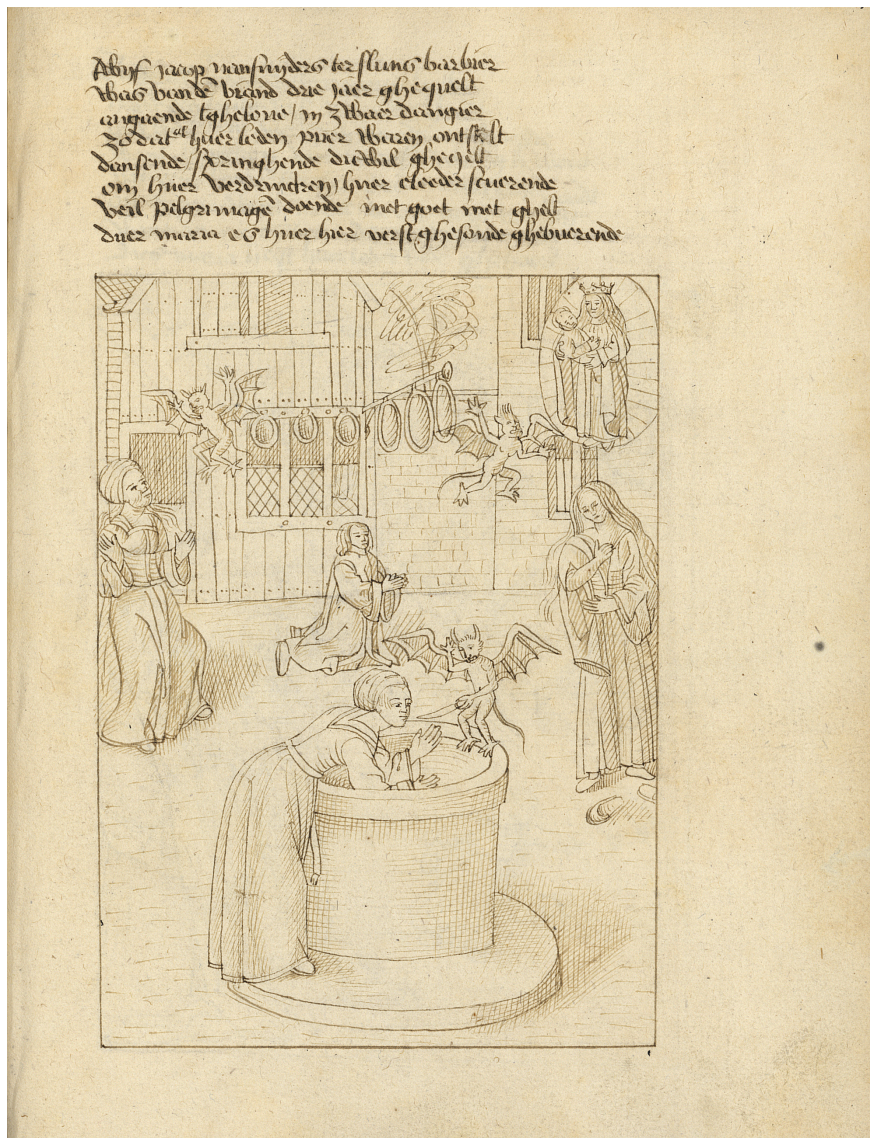 Twijf jacop van snyders ter sluus barbier
was vanden viand drie jaer ghequelt
angaende tghelove / in zwaer dangier
zo dat al huer leden puer waren ontstelt
dansende / springhende diewil ghequelt
om huer verdrincken / huer cleeder scuerende
veil pelgrimagē doende met goet met ghelt
duer maria es huer hier verst ghesonde ghebuerende